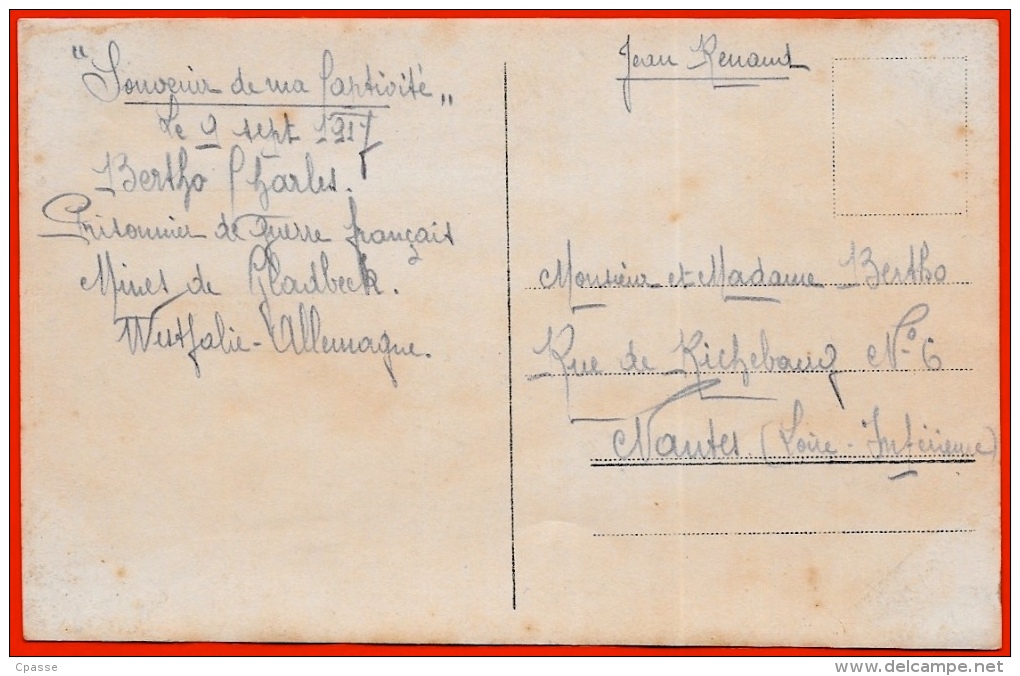 "Souvenir de ma Captivité"
Le 9 sept 1917
Bertho Charles.
Prisonnier de Guerre français
Mines de Gladbeck.
Westfalie-Allemagne.
Jean Renaud
Monsieur et Madame Bertho
Rue de Richebourg N° 6
Nantes. (Loire-Inférieure)
Cpasse
www.delcampe.net